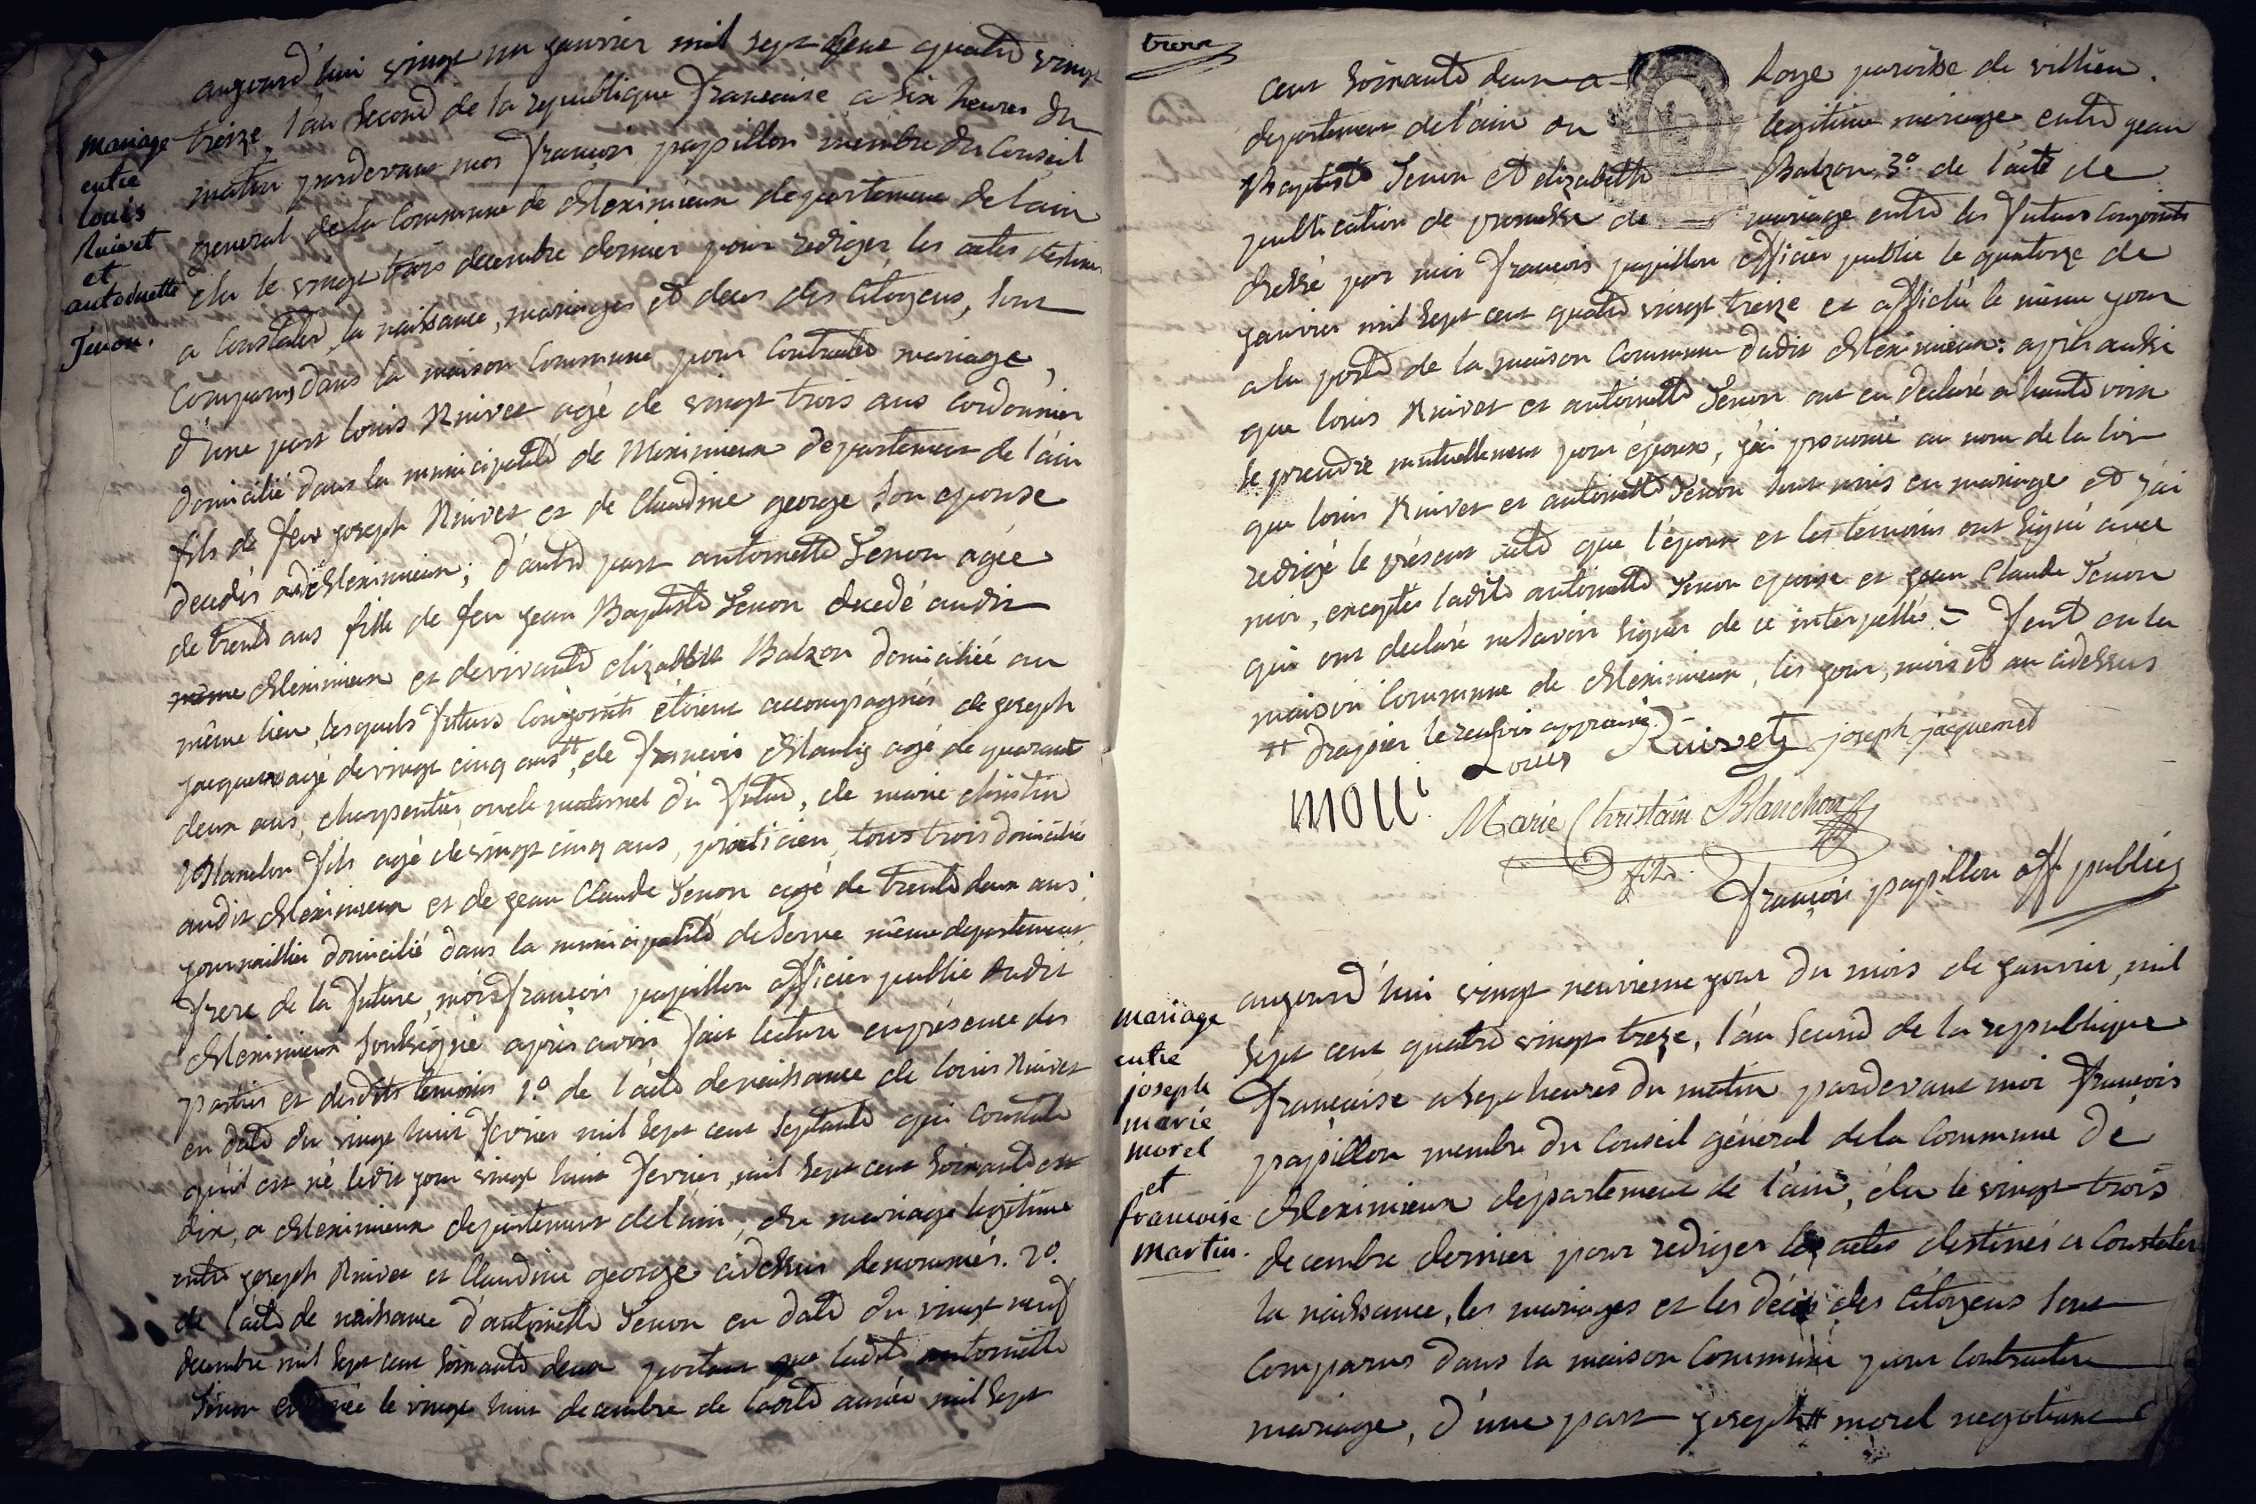 aujourd'hui vingt un janvier mil sept cent quatre vingt
treize, l'an second de la republique française a six heures du
matin pardevant moi françois papillon membre du Conseil
general de la Commune de Meximieux departement de lain
elu le vingt trois decembre dernier pour rediger les actes destinés
a Constater la naissance, mariages et deces des Citoyens, sont
Comparus dans la maison Commune pour Contracter mariage,
d'une part louis Ruivet agé de vingt trois ans Cordonnier
domicilié dans la municipalité de Meximieux departement de l'ain
fils de feu joseph Ruivet et de Claudine george son epouse
decedés audit Meximieux; d'autre part antoinette Senon agée
de trente ans fille de feu jean Baptiste Senon decedé audit
même Meximieux et de vivante elizabeth Balzon domiciliée au
même lieu, lesquels futurs Conjoints étoient accompagnés de joseph
jacquemet agé de vingt cinq ans #, de francois agé de quarant
deux ans, charpentier oncle maternel du futur, de marie christin
Blanchon fils agé de vingt cinq ans, praticien, tous trois domiciliés
audit Meximieux et de jean Claude Senon agé de trente deux ans
journaillier domicilié dans la municipalité de même departement,
frere de la future, moi françois papillon officier public dudit
Meximieux soussigné après avoir fait lecture en présence des
parties et desdits temoins 1.º de l'acte de naissance de louis Ruivet
en date du vingt huit fevrier mil sept cent septante qui Constate
qu'il est né ledit jour vingt huit fevrier mil sept cent soixante et
dix, a Meximieux departement de lain, du mariage legitime
entre joseph Ruivet et Claudine george cidessus denommés. 2.º
de l'acte de naissance d'antoinette Senon en date du vingt neuf
decembre mil sept cent soixante deux portant que ladite antoinette
Senon est née le vingt huit decembre de ladite année mil sept
mariage
entre
louis
Ruivet
et
antoinette
Senon.
treize
cent soixante deux a loye paroisse de villieu
departement de l'ain du legitime mariage entre jean
Baptiste Senon et elizabeth Balzon, 3º de l'acte de
publication de promesse de mariage entre les futurs Conjoints
dressé par moi françois papillon officier public le quatorze de
janvier mil sept cent quatre vingt treize et affiché le même jour
a la porte de la maison Commune dudit Meximieux: après aussi
que louis Ruivet et antoinette Senon ont eu declaré a haute voix
se prendre mutuellement pour époux, j'ai prononcé au nom de la loi
que louis Ruivet et antoinette Senon sont unis en mariage et j'ai
redigé le présent acte que l'époux et les temoins ont signé avec
moi, excepté ladite antoinette Senon epouse et jean Claude Senon
qui ont declaré ne savoir signer de ce interpellé = fait en la
maison Commune de Meximieux, les jour, mois et an cidessus
# drapier le renvoi approuvé
Louis Ruivet joseph jacquemet
Marie Christain Blanchon
fils.
françois papillon off. public
mariage
entre
joseph
marie
morel
et
francoise
martin.
aujourd'hui vingt neuvieme jour du mois de janvier, mil
sept cent quatre vingt treze, l'an second de la republique
française a sept heures du matin pardevant moi françois
papillon membre du Conseil général de la Commune de
Meximieux département de l'ain, élu le vingt trois
decembre dernier pour rediger les actes destinés a Constater
la naissance, les mariages et les décès des Citoyens sont
Comparus dans la maison Commune pour Contracter
mariage, d'une part joseph # morel negotiant